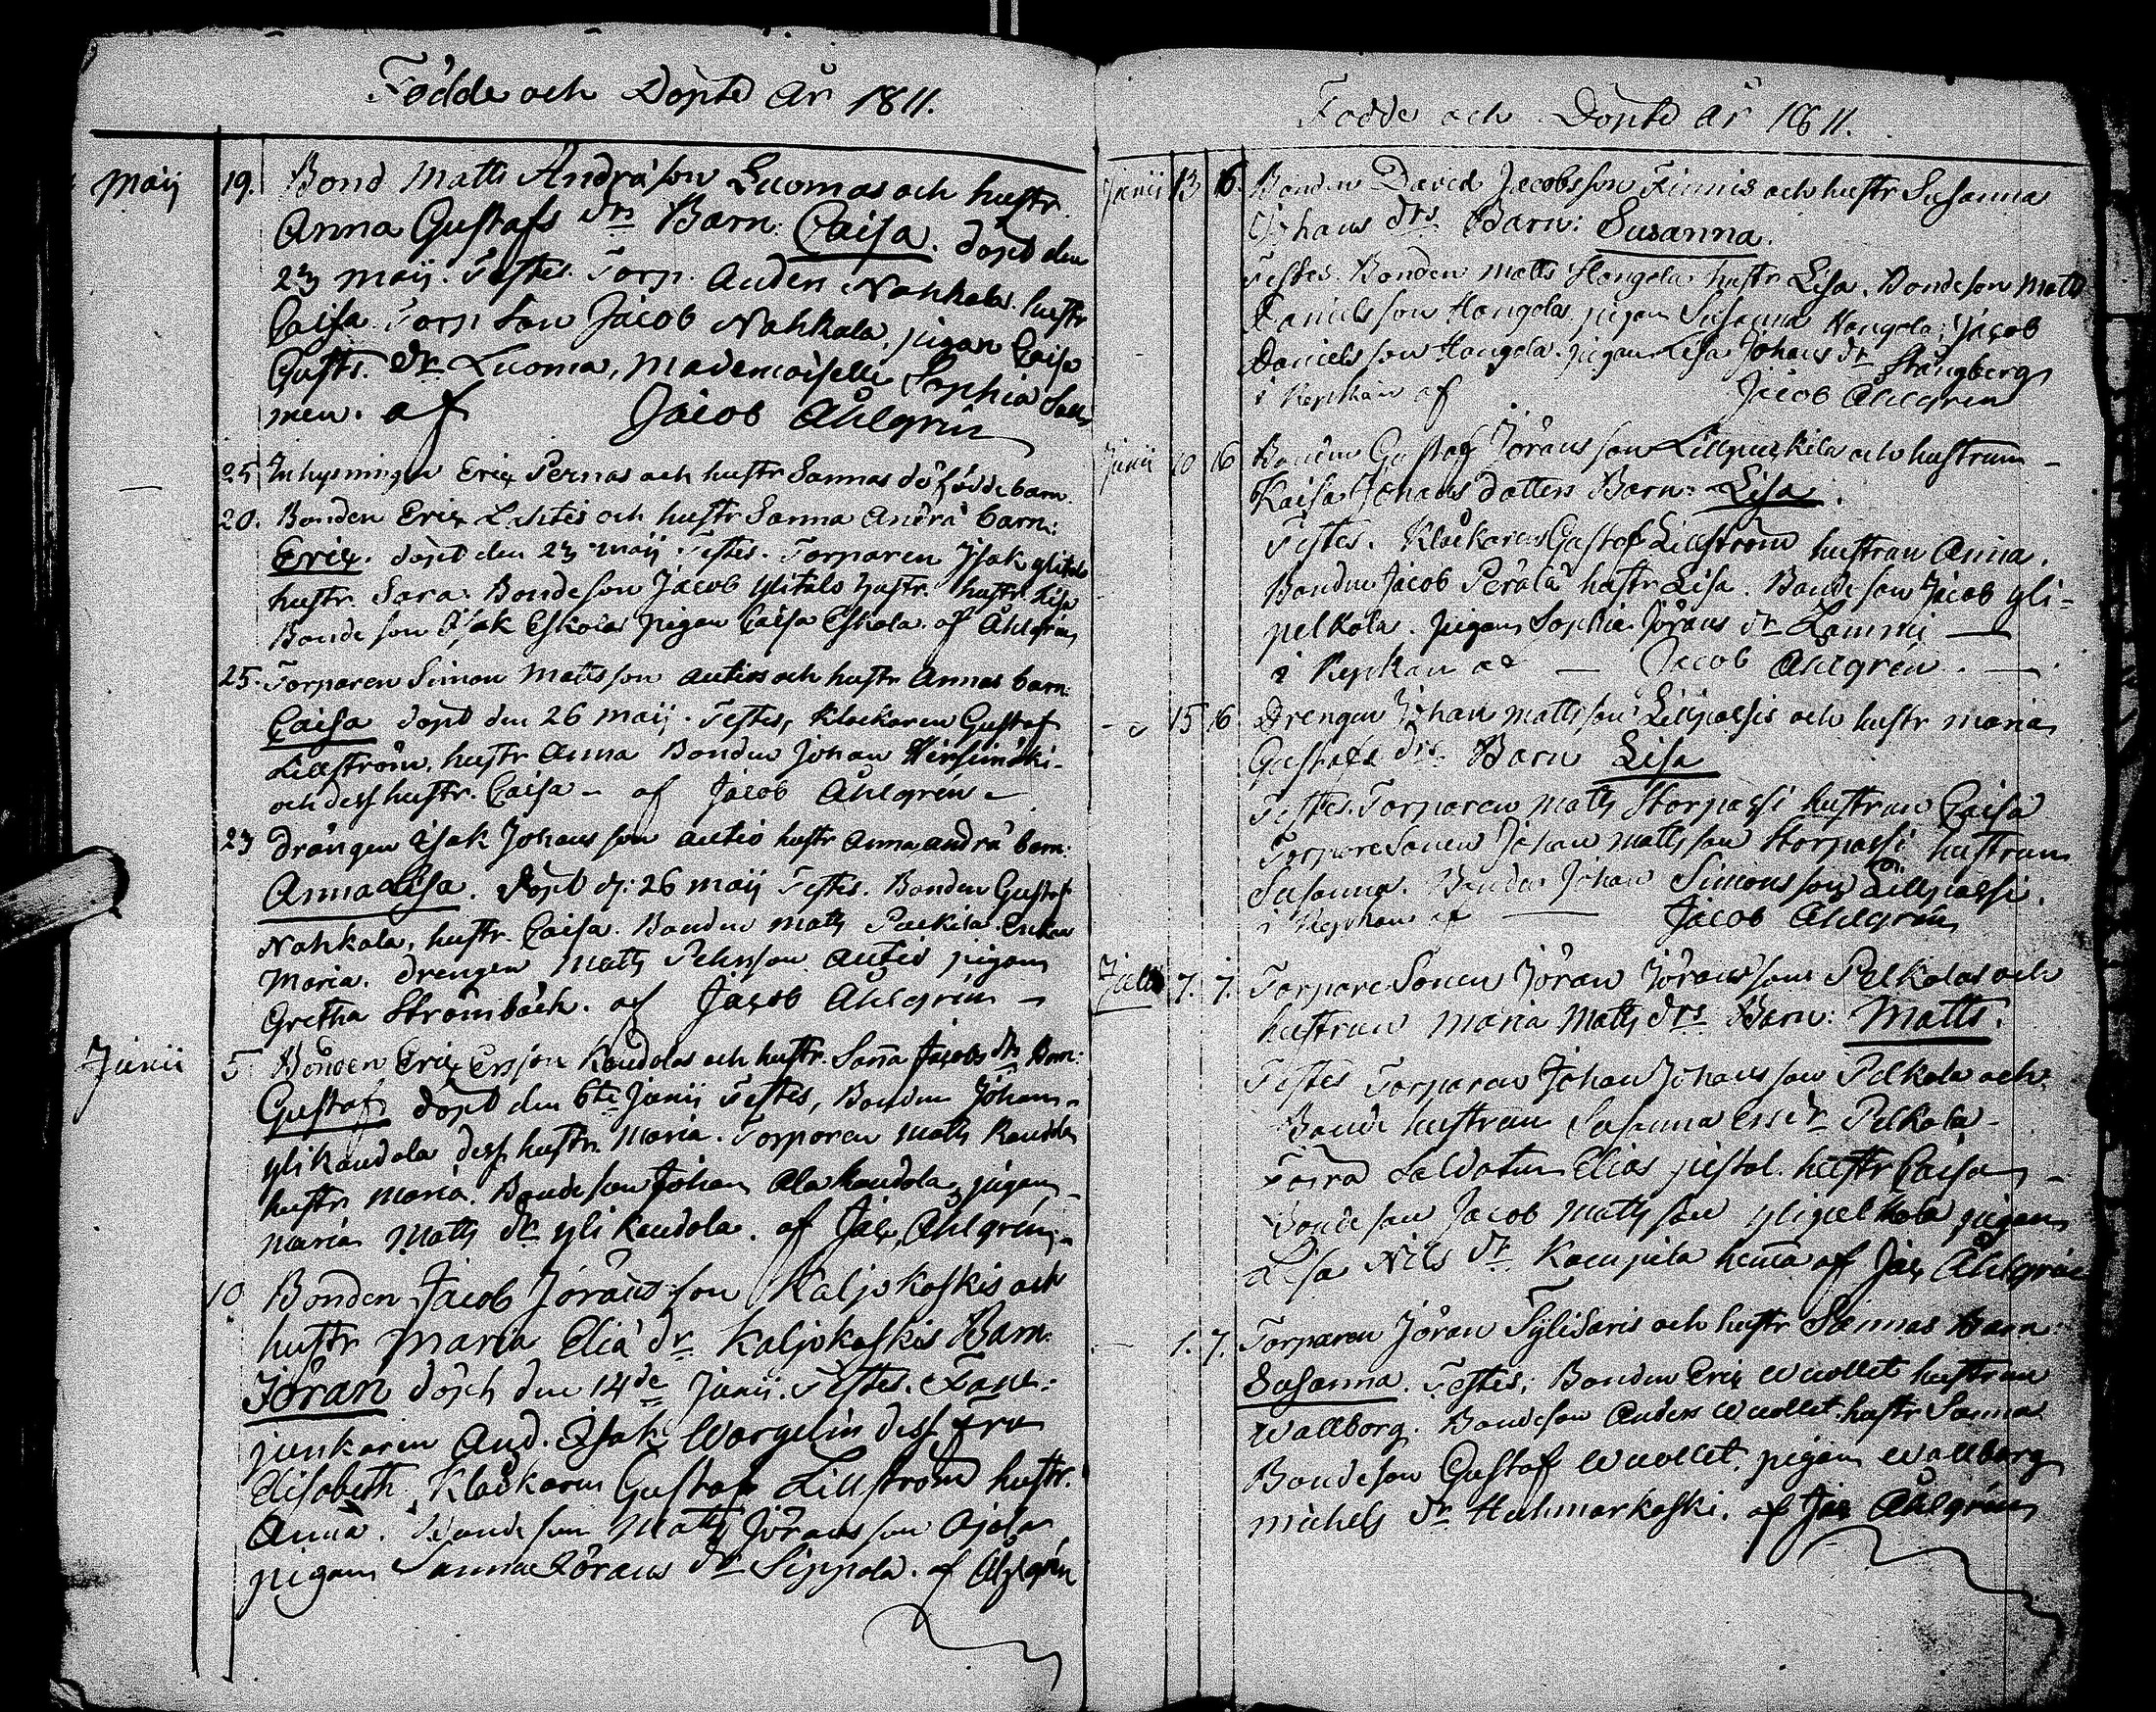 Födde och Döpte År 1811.
Maij 19. Bond Matts Andräson Luomas och hustr.
Anna Gustafs drs Barn: Caisa. döpt den
23 Maij. Testes. Torp. Anders Nahkala. hustr
Caisa Torp Son Jacob Nahkala, pigan Caisa
Gusts. dr Luoma, Mademoiselle Sophia Sal
men. af Jacob Ahlgrén
— 25 Inhysningen Erix Pernas och hustr Sannas dödfödde barn.
20. Bonden Erix Lahtis och hustr Sanna Andrä barn:
Erix. döpt den 23 maij. Testes. Torparen Isak ylitalo
hustr. Sara. Bondeson Jacob ylitalo hustr. Lisa
Bonde son Isak Eskola pigan Caisa Eskola. af Åhlgrén
25. Torparen Simon Mattsson Autios och hustr Annas barn:
Caisa döpt den 26 maij. Testes, Klockaren Gustaf
Lillström, hustr Anna Bonden Johan Hirsimäki-
och dess hustr. Caisa - af Jacob Åhlgrén -
23 drängen Isak Johansson Autio hustr Anna Andrä barn:
Anna Lisa. döpt d: 26 maij Testes. Bonden Gustaf
Nahkala, hustr. Caisa. Bonden Matts Enkan
Maria. drengen Matts Pehrsson Autio pigan
Gretha Strömbäck. af Jacob Åhlgrén -
Junii 5 Bonden Erix Ersson Kaudolas och hustr. Sanna Jacobs drs Barn:
Gustaf döpt den 6te Junii Testes, Bonden Johan
yli Kaudola dess hustr. Maria. Torparen Matts Kaudola
hustr Maria. Bondeson Johan Ala Kaudola, pigan
Maria Matts dr yli Kaudola. af Jax, Åhlgrén
10. Bonden Jacob Jöransson Kaljokoskis och
hustr Maria Eliä dr Kaljokoskis Barn:
Jöran döpt den 14de Junii. Testes. Fan-
junkaren And. Isak Wargelin dess fru
Elisabeth, Klockaren Gustaf Lillström hustr.
Anna. Bonde son Matts Jöransson Ojala
pigan Sanna Jörans dr Sippola. af Ahlgrén
Födde och Döpte År 1811.
Junii 13 16. Bonden David Jacobsson Finnis och hustr Susanna
Johans drs Barn: Susanna.
Testes. Bonden Matts Hangola hustr Lisa. Bondeson Matts
Danielsson Hangola, pigan Susanna Hangola, Jacob
Danielsson Hangola. pigan Lisa Johans dr Strangberg
i Kyrkan af Jacob Åhlgrén
Junii 10 16 Bonden Gustaf Jöransson och hustrun -
Kaisa Johans dotters Barn: Lisa.
Testes. Klåckaren Gustaf Lillström hustrun Anna.
Bonden Jacob Perälä hustr Lisa. Bonde son Jacob yli-
pelkola. pigan Sophia Jörans dr Lammi —
i Kyrkan af — Jacob Ahlgrén. —
— 15 16 Drengen Johan Mattsson Lillpassis och hustr Maria
Gustafs drs Barn Lisa
Testes. Torparen Matts Storpassi hustrun Caisa
Torparesonen Johan Mattsson Storpassi hustrun
Susanna. Bonden Johan Simonsson Lillpassi.
i Kyrkan af — Jacob Ahlgrén
Julii 7. 7. Torpare Sonen Jöran Jöransson Pelkolas och
hustrun Maria Matts drs Barn: Matts.
Testes Torparen Johan Johansson Pelkola och
Bonde hustrun Susanna Ers dr Pelkola-
Förra Soldaten Elias pistol. hustr Caisa -
Bonde son Jacob Mattsson ylipelkola pigan
Lisa Nils dr hema af Jax Åhlgrén
— 1. 7. Torparen Jöran Sylisaris och hustr Sannas Barn
Susanna. Testes; Bonden Erix Wuollet hustrun
Wallborg. Bondeson Anders Wuollet hustr Sanna
Bondeson Gustaf Wuollet, pigan Wallborg
Michels dr Huhmarkoski. af Jax Åhlgrén